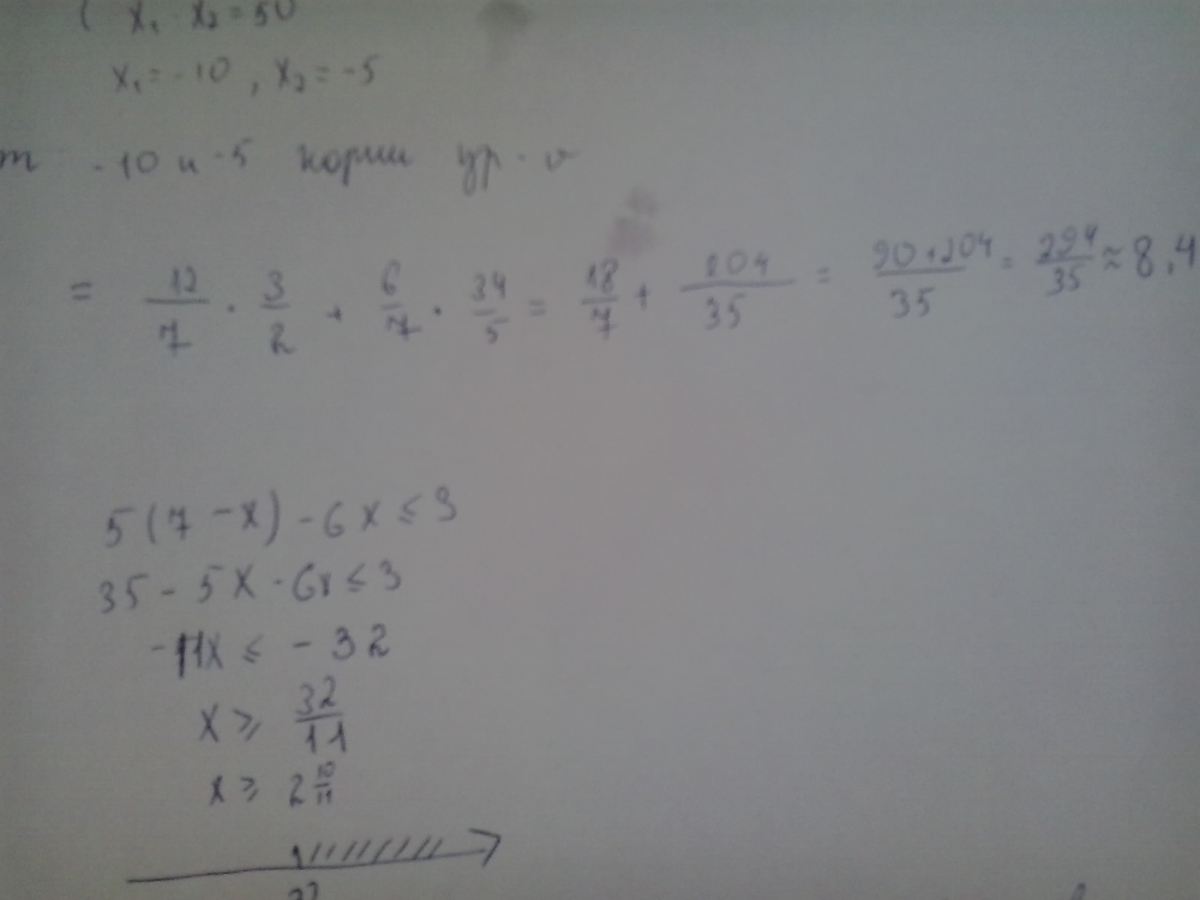 { x₁ · x₂ = 50
x₁ = -10 , x₂ = -5
т -10 и -5 корни ур-я
= 12/7 · 3/2 + 6/7 · 34/5 = 18/7 + 204/35 = 90+204/35 = 294/35 ≈ 8,4
5(7 - x) - 6x ≤ 3
35 - 5x - 6x ≤ 3
-11x ≤ -32
x ≥ 32/11
x ≥ 2 10/11